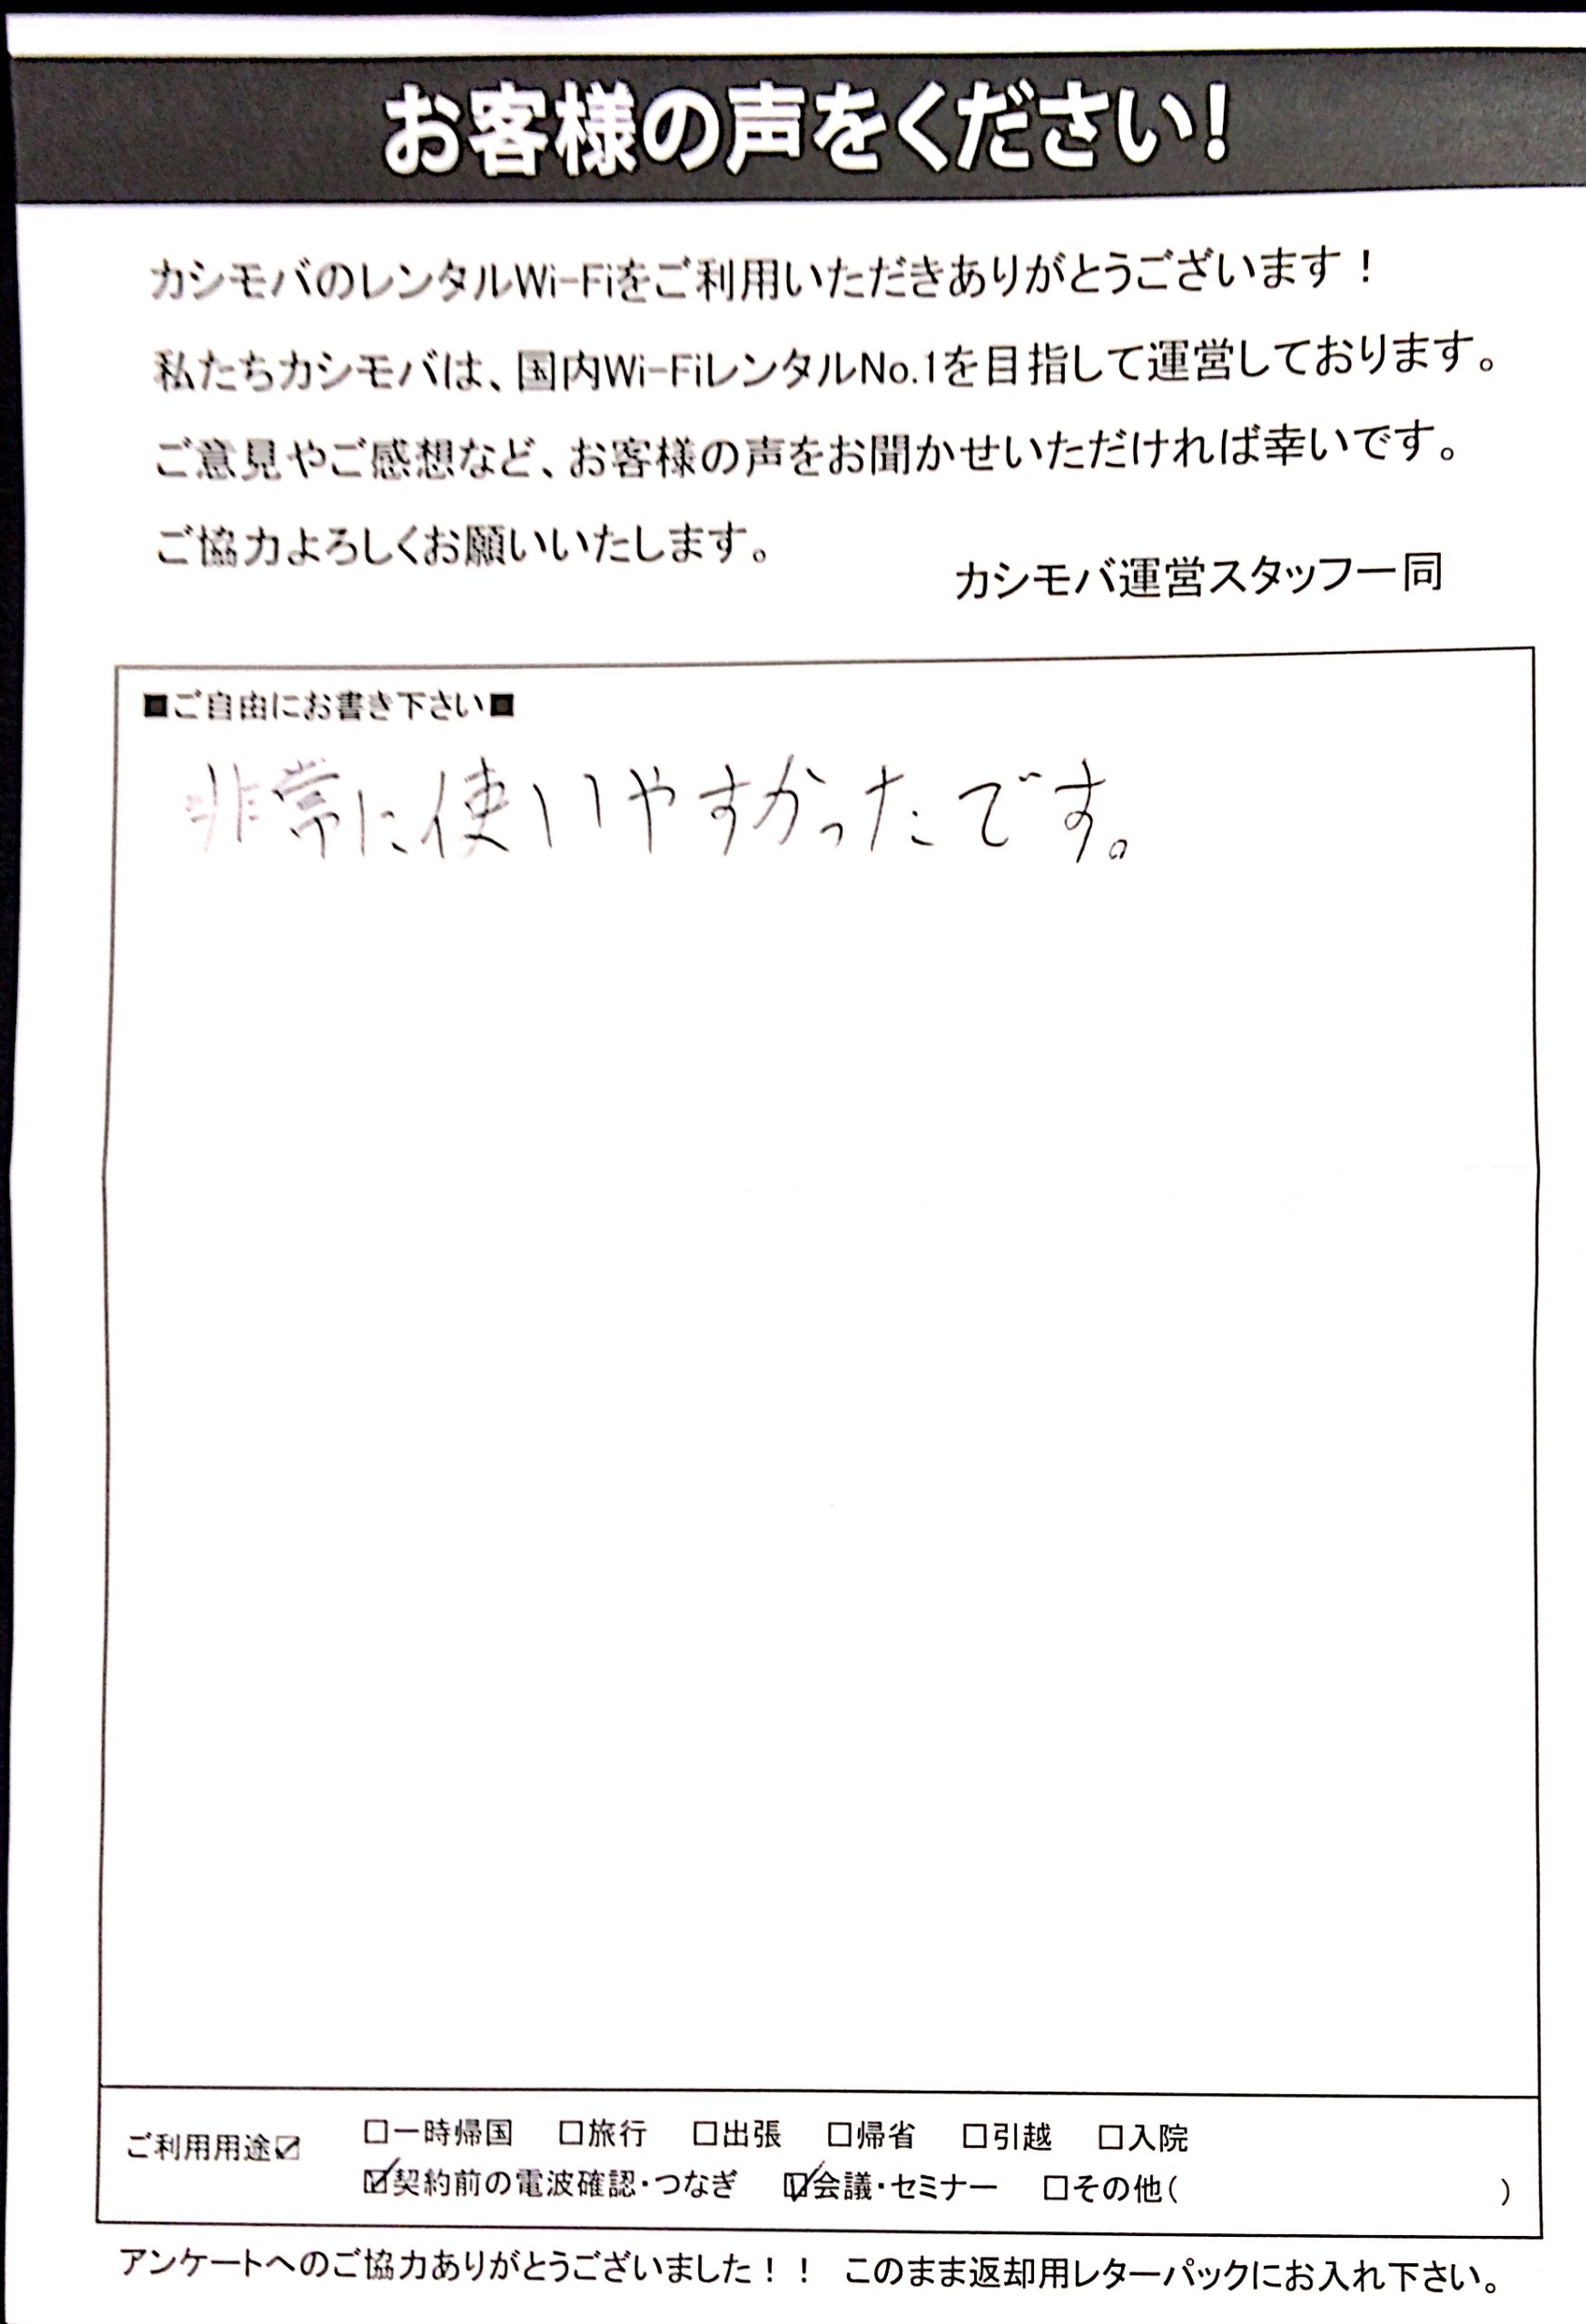 お客様の声をください!
カシモバのレンタルWi-Fiをご利用いただきありがとうございます！
私たちカシモバは、国内Wi-FiレンタルNo.1を目指して運営しております。
ご意見やご感想など、お客様の声をお聞かせいただければ幸いです。
ご協力よろしくお願いいたします。
カシモバ運営スタッフ一同
■ご自由にお書き下さい■
非常に使いやすかったです。
ご利用用途☑ □一時帰国 □旅行 □出張 □帰省 □引越 □入院
☑契約前の電波確認・つなぎ ☑会議・セミナー □その他( )
アンケートへのご協力ありがとうございました！！ このまま返却用レターパックにお入れ下さい。